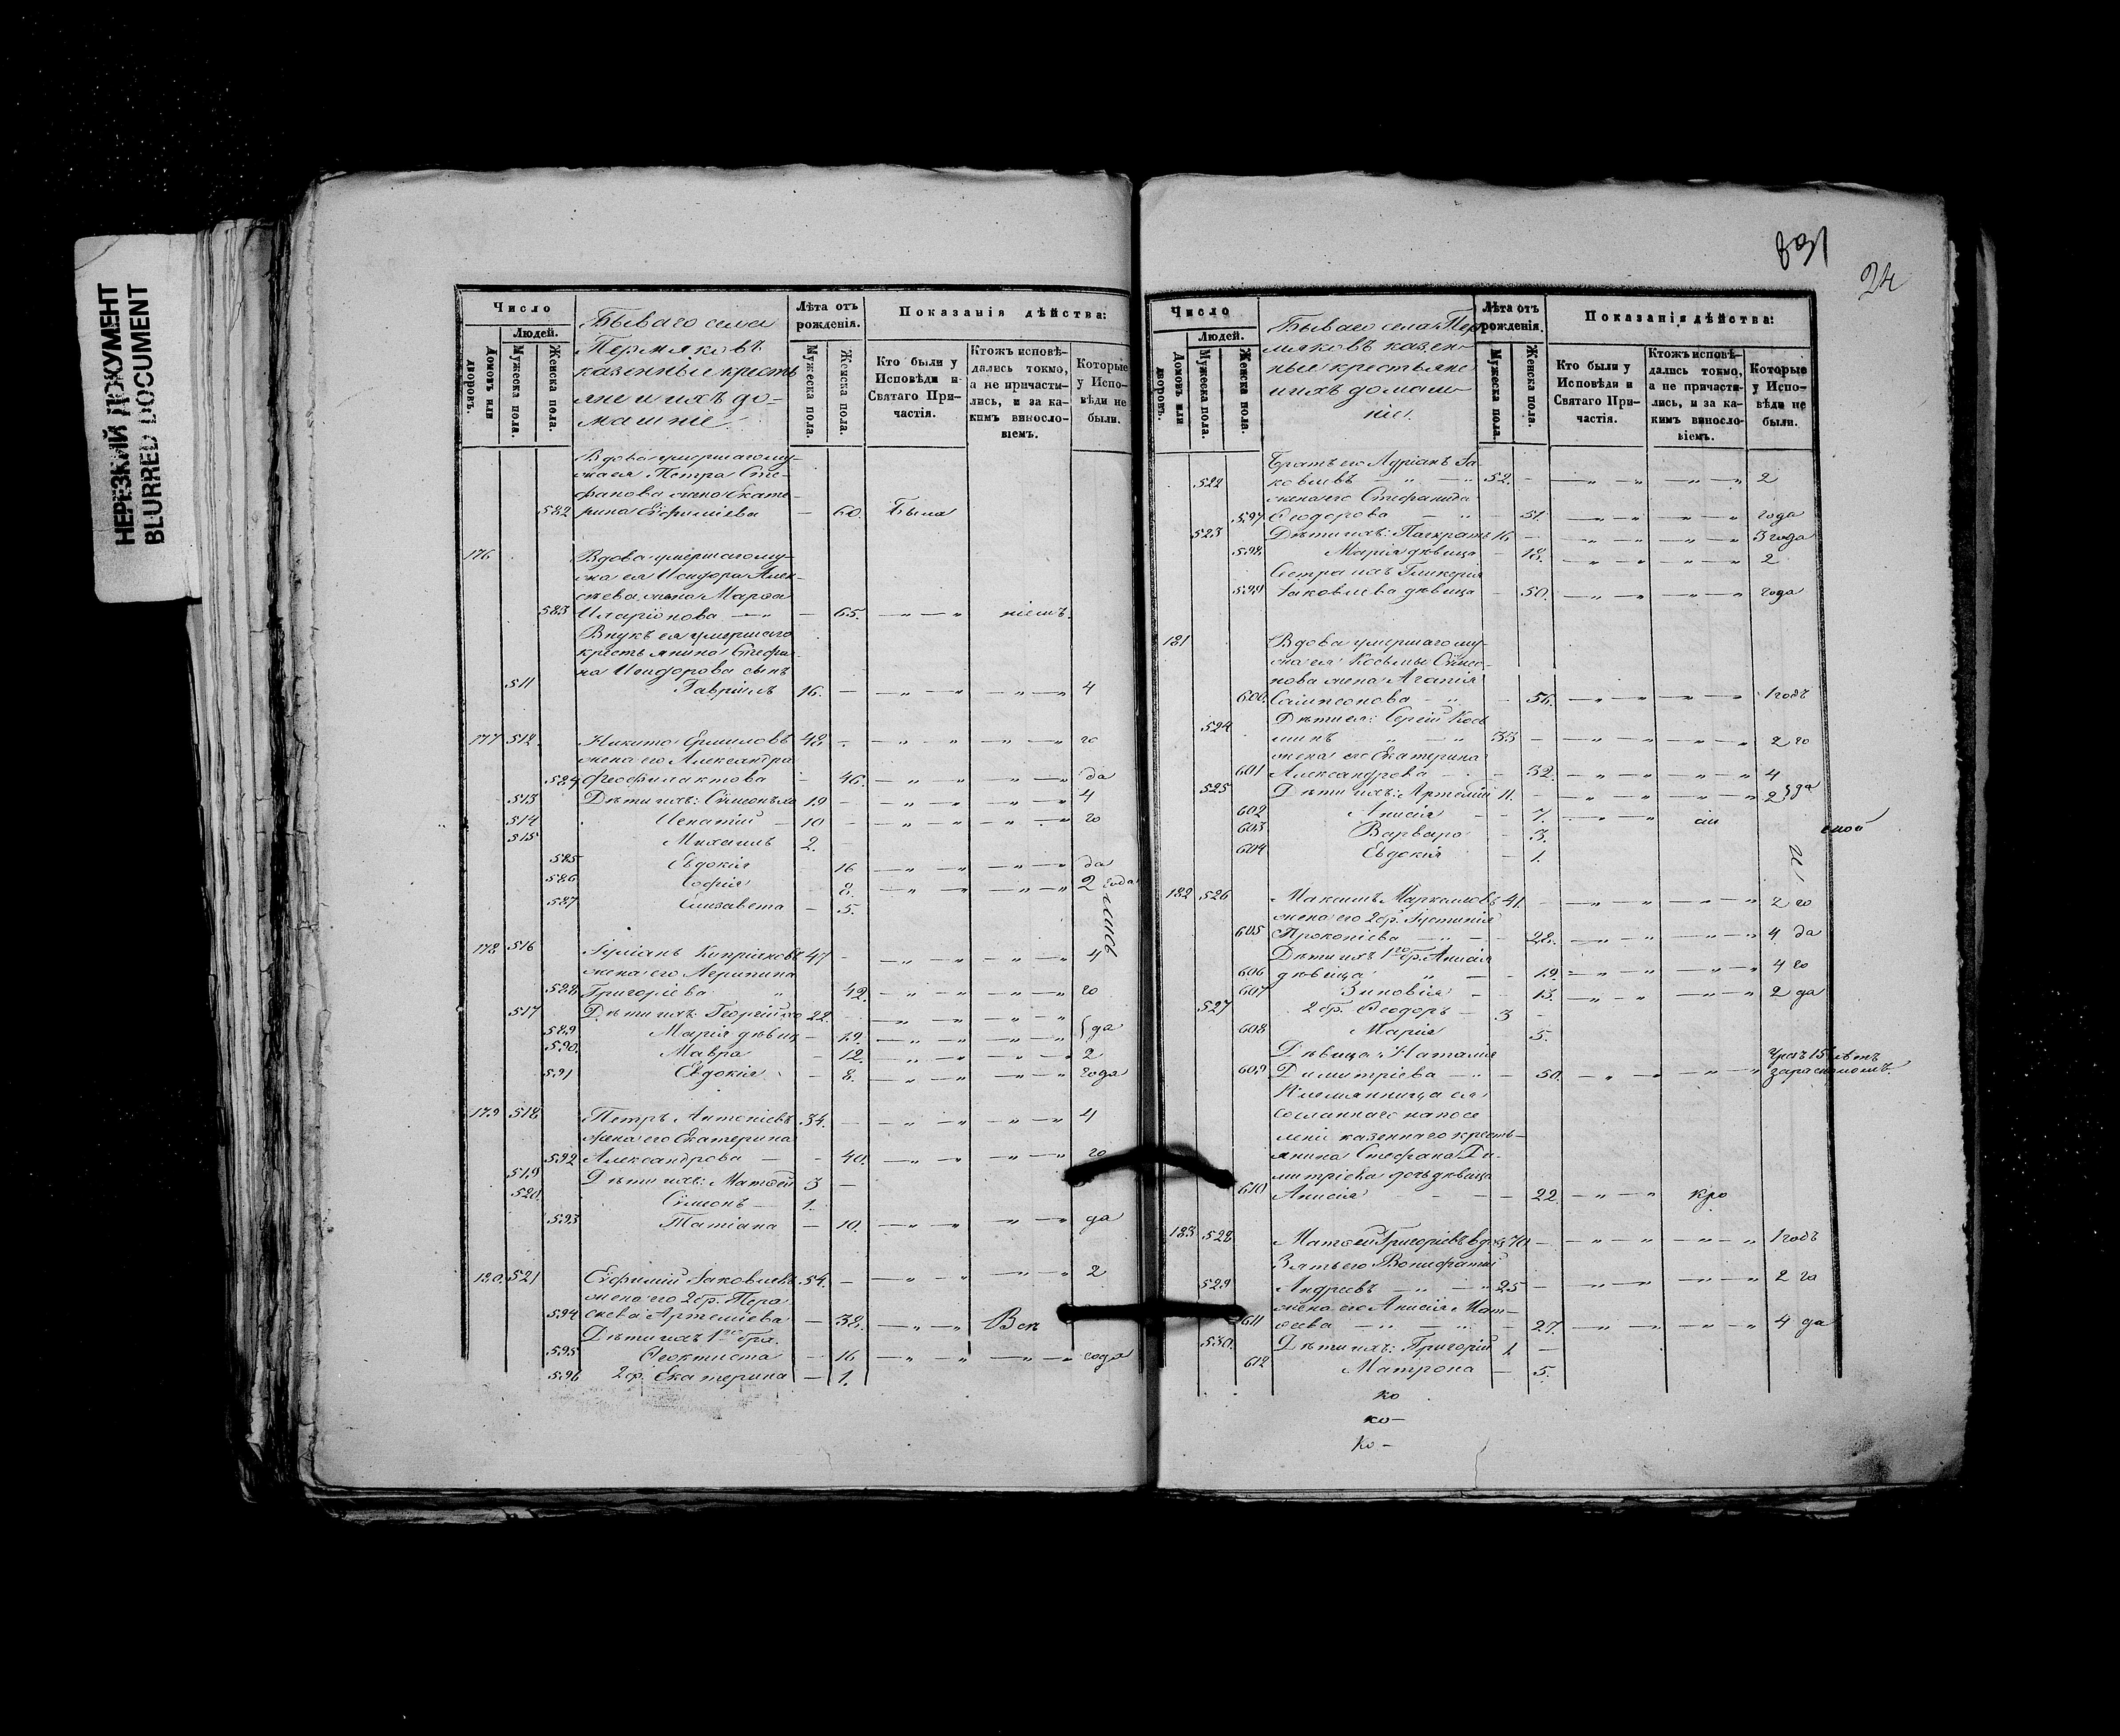 НЕРЕЗКИЙ ДОКУМЕНТ
BLURRED DOCUMENT
Число
Людей.
Домовъ или дворовъ.
Мужеска пола.
Женска пола.
Бываго села
Пермяковъ
казенные кресть
яне и ихъ до-
машніе
Лѣта отъ рожденія.
Мужеска пола.
Женска пола.
Показанія дѣйства:
Кто были у Исповѣди и Святаго Причастія.
Ктожъ исповѣдались токмо, а не причастились, и за какимъ винословіемъ.
Которые у Исповѣди не были.
Вдова умершаго му-
жа ея Петра Сте-
фанова жена Екате-
582 рина Евфиміева — 60. Была
176 Вдова умершаго му-
жа ея Исидора Алек-
сѣева жена Марѳа
583 Иларіонова — 65. — " — "
Внукъ ея умершаго
крестьянина Стефа-
на Исидорова сынъ
511 Гавріилъ 16. — — " — " — " — 4
177 512. Никита Ермиловъ 48 — — " " — " — го
жена его Александра
584 Феофилактова 46. — " " — " — да
513 Дѣти ихъ: Симонъ 19 — — " — " — " — 4
514 Игнатій — 10 — — " — " — " — го
515 Михаилъ 2.
585 Евдокія 16 — " — " — " — да
586 Софія 8. — " — " — " — 2 года
587 Елизавета — 5.
178 516 Іуліанъ Кипріановъ 47 — — " — " — " — 4
жена его Агрипина
588 Григоріева 42. — " — " — " — го
517 Дѣти ихъ: Георгій 22. — " — " — " —
589 Марія дѣвица — 19. — " — " — " — да
590. Мавра — 12. — " — " — " — 2
591 Евдокія — 8. — " — " — " — года
179 518 Петръ Антоніевъ 34. — — " — " — " — 4
жена его Екатерина
592 Александрова — 40. — " — " — " — го
519 Дѣти ихъ: Матѳей 3 —
520. Симонъ — 1.
593 Татіана — 10. — " — " — " — да
180. 521 Евфимій Іаковлевъ 54. — — " — " — " — 2
жена его 2 бр. Пара
594 скева Артеміева — 38. — " — " Вск
Дѣти ихъ 1го бра.
595 Ѳеоктиста — 16 — " — " — " — года
596 2 бр. Екатерина — 1.
831
24
Число
Людей.
Домовъ или дворовъ.
Мужеска пола.
Женска пола.
Бываго села Пер
мяковъ казен-
ные крестьяне
и ихъ домаш-
ніе.
Лѣта отъ рожденія.
Мужеска пола.
Женска пола.
Показанія дѣйства:
Кто были у Исповѣди и Святаго Причастія.
Ктожъ исповѣдались токмо, а не причастились, и за какимъ винословіемъ.
Которые у Исповѣди не были.
Братъ его Адріанъ Іа-
522 ковлевъ — " — " 52. — — " — " — " — " 2
жена его Стефанида
597 Ѳеодорова — " — 51. — " — " — " — " года
523 Дѣти ихъ: Панкратъ 16 — — " — " — " — " 3 года
598. Марія дѣвица — 18. — " — " — " — " 2
Сестра ихъ Гликерія
599 Іаковлева дѣвица — 50. — " — " — " — " года
181 Вдова умершаго му-
жа ея Космы Симо-
нова жена Агапія
600. Сампсонова — " — 56. — " — " — " — " 1 годъ
524 Дѣти ея: Сергій Кось
минъ " — " 33 — — " — " — " — " 2 го
жена его Екатерина
601 Александрова — 32. — " — " — " — " 4
525 Дѣти ихъ: Артемій 11. — — " — " — " — " 2 да
602 Анисія — 7. — " — "
603 Варвара — 3.
604 Евдокія — 1.
182 526 Максимъ Маркеловъ 41. — — " — " — " — " 2 го
жена его 2 бр. Іустинія
605 Прокопіева — " — 28. — " — " — " — " 4 да
Дѣти ихъ 1го бр. Анисія
606 дѣвица " — 19. — " — " — " — " 4 го
607 Зиновія — 13. — " — " — " — " 2 да
527 2 бр. Ѳеодоръ — 3 —
608 Марія 5.
Дѣвица Наталія
609 Димитріева — " — 50. — " — " — " — " Чрезъ 15 лѣтъ
Племянница ея
сосланнаго на посе
леніе казеннаго кресть-
янина Стефана Ди-
митріева дочь дѣвица
610 Анисія — — — 22. — " — " кро
183 528. Матѳей Григоріевъ вдов 70. — — " — " — " — " 1 годъ
Зять его Вонифатій
529 Андреевъ — " — " 25 — — " — " — " — " 2 го
жена его Анисія Мат-
611 ѳеева — " — " 27. — " — " — " — " 4 да
530. Дѣти ихъ: Григорій 1 —
612 Матрона — 5.
ко
ко-
Ко -